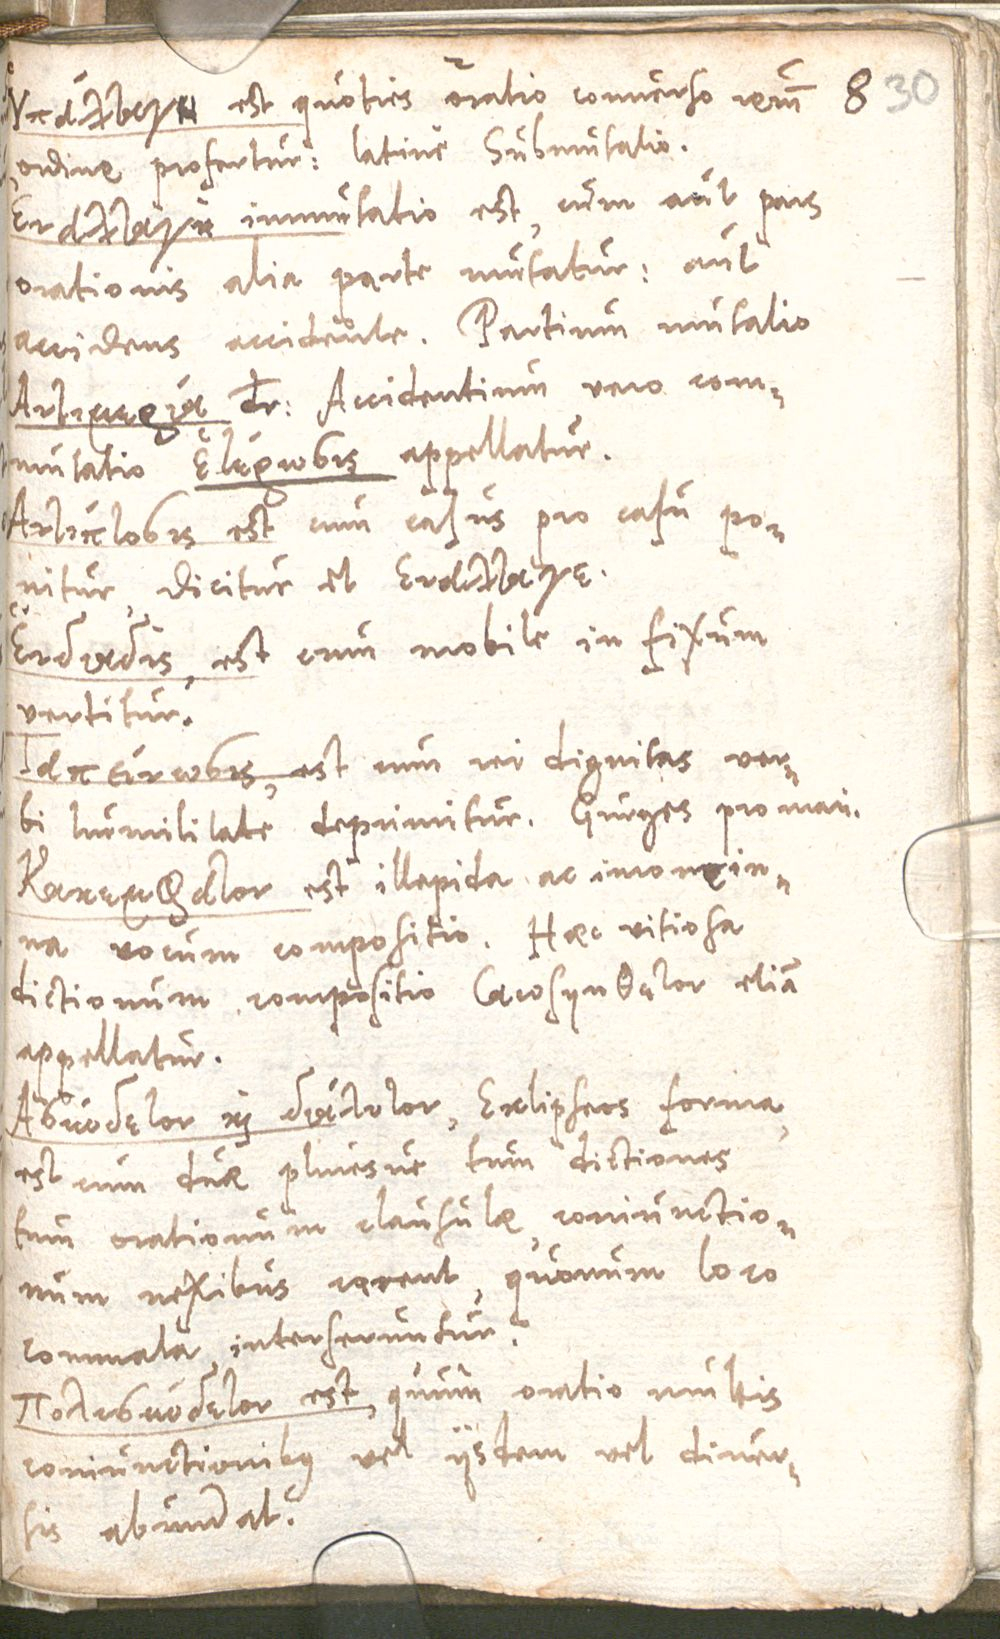 Ὑπάλλαγη est quoties oratio converso rerũ 8 30
ordine profertur: latine Submutatio.
Ἐνάλλαγη immutatio est, cum aut pars
orationis alia parte mutatur: aut
accidens accidente. Partium mutatio
Ἀντιμερία dr: Accidentium vero com-
mutatio Ἑτέρωσις appellatur.
Ἀντίπτοσις est cum casus pro casu po-
nitur, dicitur et Ἐνάλλαγε.
Ἔνδυαδις, est cum mobile in fixum
vertitur.
Ταπείνωσις, est cum rei dignitas ver-
bi humilitate deprimitur. Gurges pro mari.
Κακέμφατον est illepida ac inconcin-
na vocum compositio. Hæc vitiosa
dictionum compositio Cacosyntheton etiã
appellatur.
Ἀσύνδετον ϗ διάλυτον, Eclipseos forma,
est cum duæ pluresve tum dictiones
tum orationum clausulæ, coniunctio-
num nexibus carent, quorum loco
commata interseruntur.
Πολυσύνδετον est, quum oratio multis
coniunctionibꝰ vel ijsdem vel diver-
sis abundat.